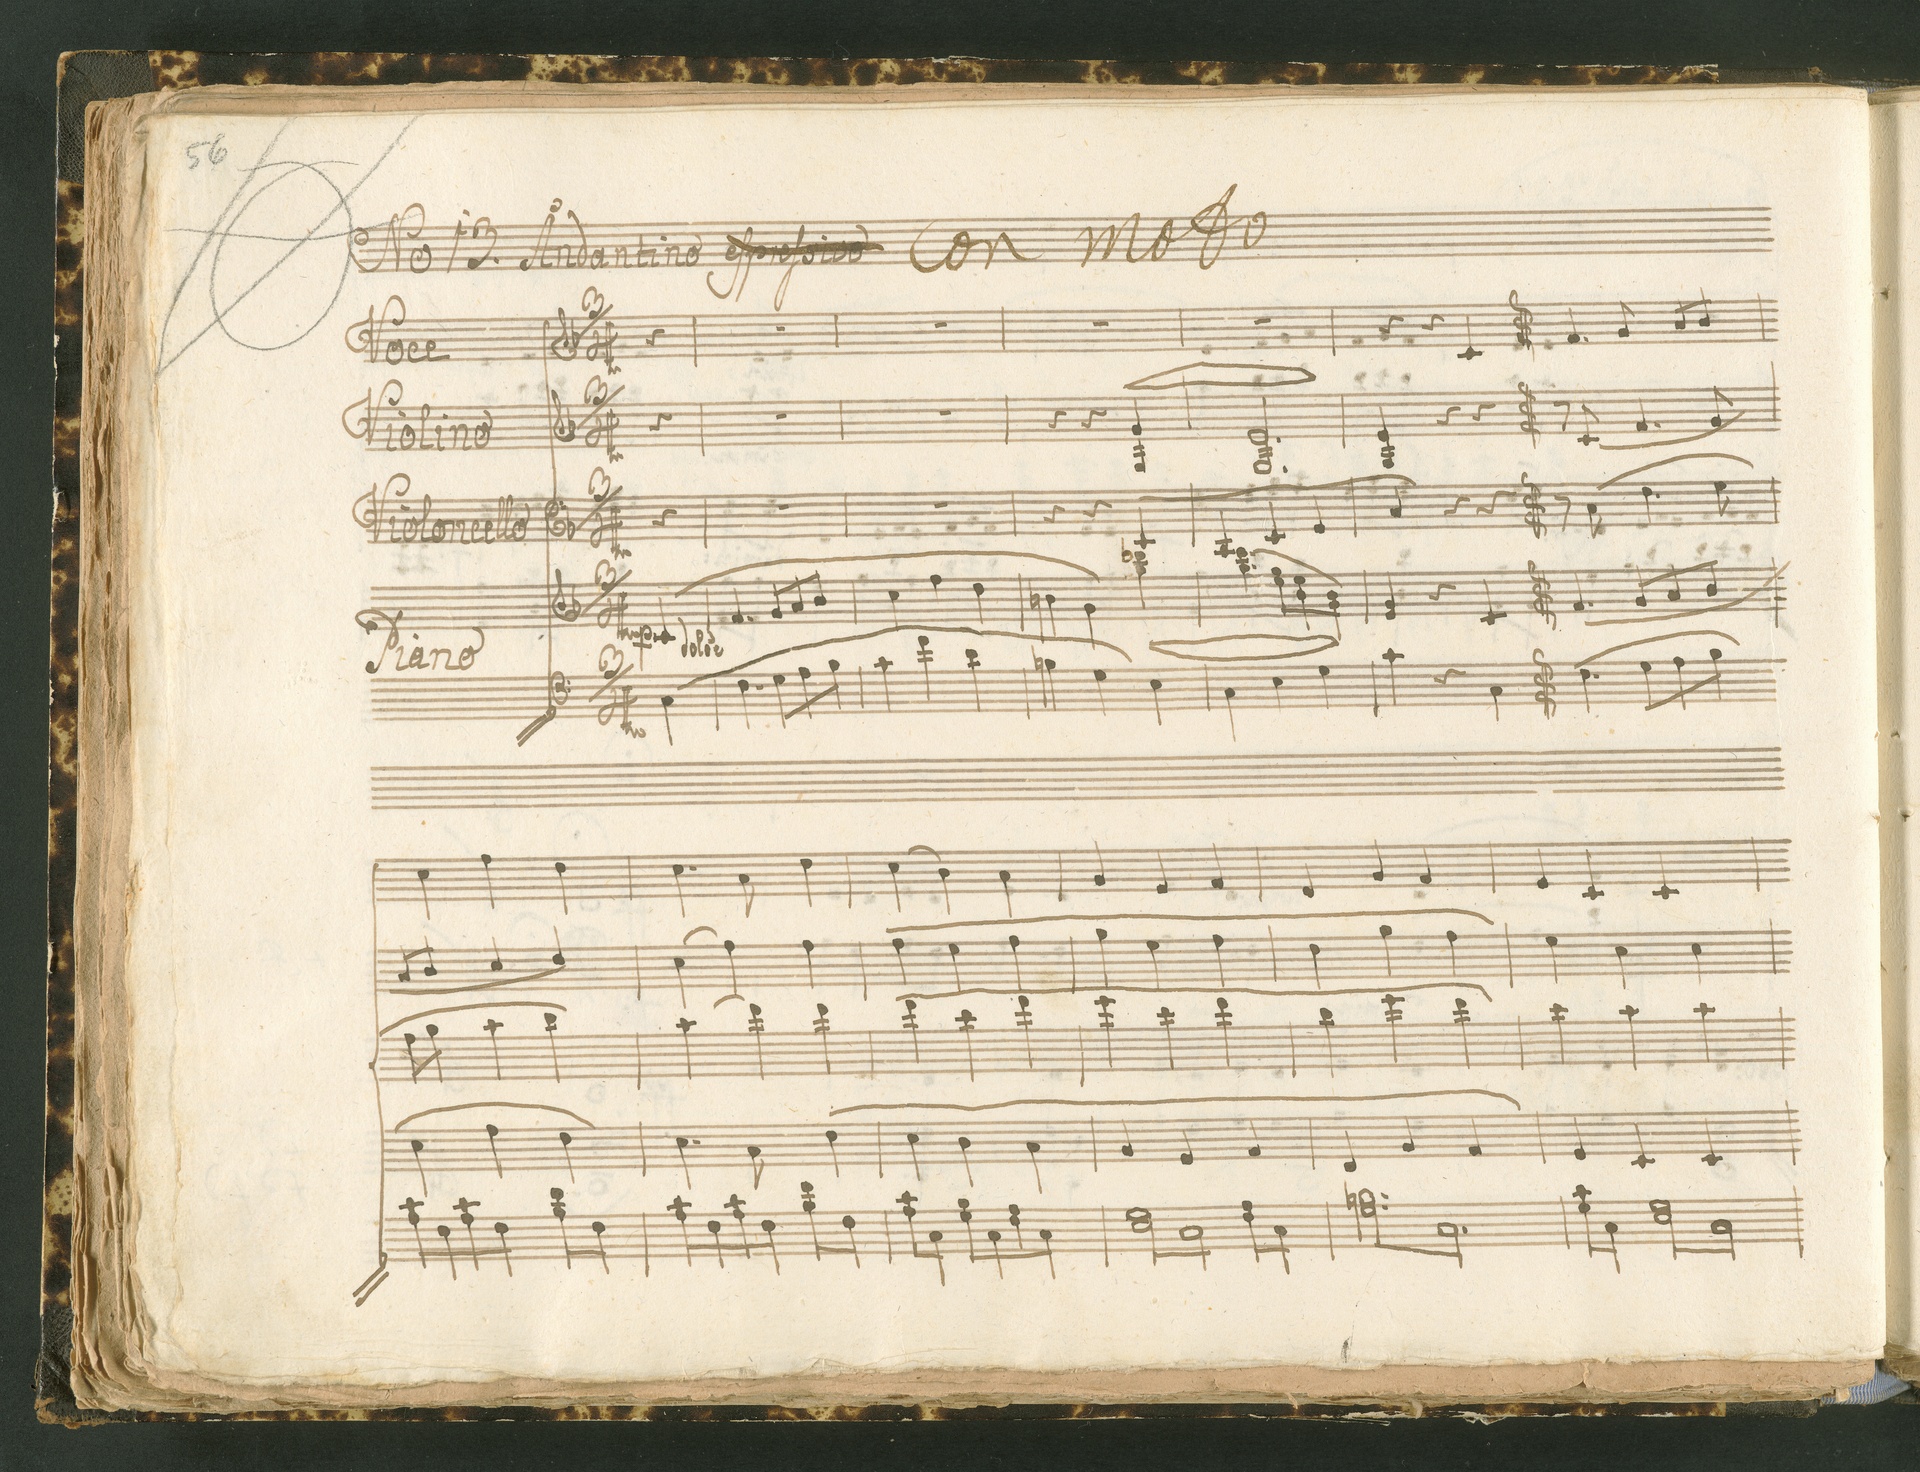 56
No 13. Andantino espressivo Con moto
Voce
Violino
Violoncello
Piano
dolce